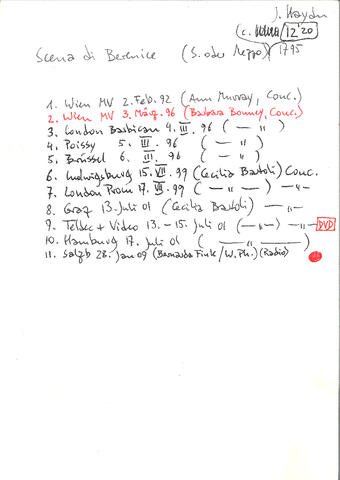 J. Haydn
(c. 12'20
Scena di Berenice (S. oder Mezzo) 1795
1. Wien MV 2. Feb. 92 (Ann Murray, Conc.)
2. Wien MV 3. März. 96 (Barbara Bonney, Conc.)
3. London Barbican 4. III. 96 ( — " )
4. Poissy 5. III. 96 ( — " )
5. Brüssel 6. III. 96 ( — " )
6. Ludwigsburg 15. VII. 99 (Cecilia Bartoli) Conc.
7. London Prom 17. VII. 99 ( — " — ) — " —
8. Graz 13. Juli 01 (Cecilia Bartoli) — " —
9. Teldec + Video 13. – 15. Juli 01 ( — " — ) — " — DVD
10. Hamburg 17. Juli 01 ( — " — )
11. Salzb 28. Jan 09 (Bernarda Fink / W. Ph.) (Radio)